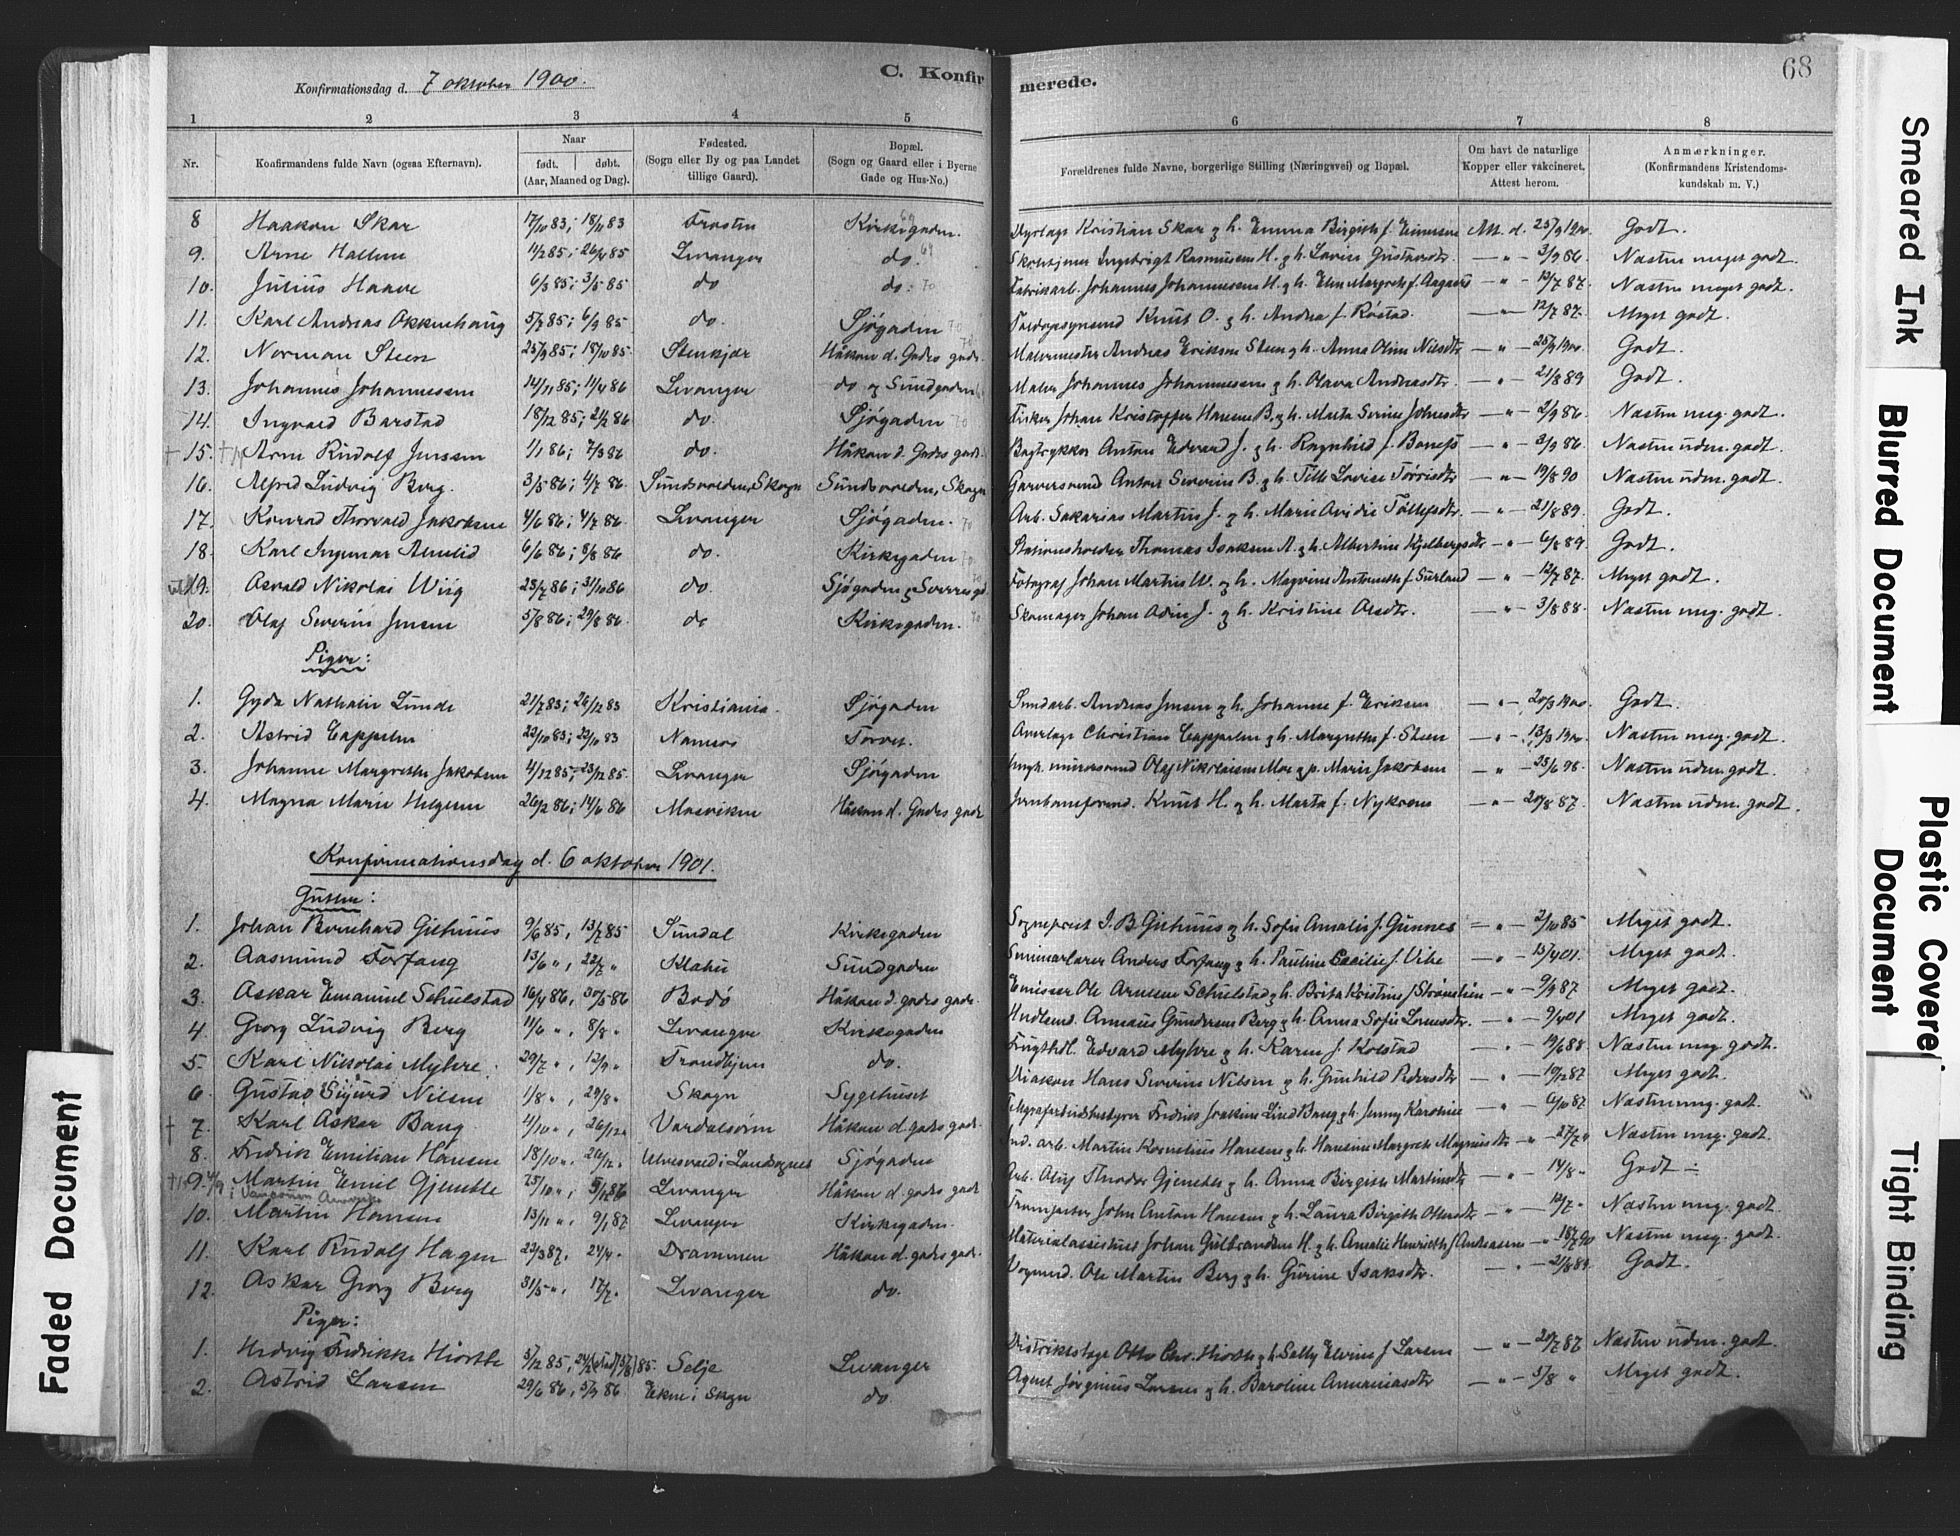 Konfirmationsdag d. 7 oktober 1900. C. Konfirmerede. 68
1 2 3 4 5 6 7 8
Nr. Konfirmandens fulde Navn (ogsaa Efternavn). Naar født. døbt. (Aar, Maaned og Dag). Fødested. (Sogn eller By og paa Landet tillige Gaard). Bopæl. (Sogn og Gaard eller i Byerne Gade og Hus-No.) Forældrenes fulde Navne, borgerlige Stilling (Næringsvei) og Bopæl. Om havt de naturlige Kopper eller vakcineret. Attest herom. Anmærkninger. (Konfirmandens Kristendomskundskab m. V.)
8 Haakon Skar 17/10 83; 18/11 83 Frosten Kirkegaden. 69 Dyrlæge Kristian Skar & h. Emma Birgith f. Att. d. 25/9 1900. Godt.
9. Arne Hallem 11/2 85; 26/4 85 Levanger do. 69 Ingebrigt Rasmussen H. & h. Lovise Gustavsdtr. — " — 3/9 86 Næsten meget godt.
10. Julius Haave 6/3 85; 3/5 85 do do. 70 Fabrikarb. Johannes Johannessen H. & h. Elen Margrethe f. Aagaard — " — 12/7 87. Næsten meget godt.
11. Karl Andreas Okkenhaug 5/7 85; 6/9 85 do. Sjøgaden 70 Toldopsynsmd Knut O. & h. Andrea f. Røstad. — " — 12/7 87. Meget godt.
12. Norman Steen 25/9 85; 18/10 85. Stenkjær Håkon d. Godes gade. 70 Malermester Andreas Erikson Steen & h. Anna Oline Nilsdtr — " — 25/9 1900. Godt.
13. Johannes Johannessen 14/11 85; 11/4 86 Levanger do & Sundgaden Maler Johannes Johannessen & h. Olava Andreasdtr. — " — 21/8 89 Godt.
14. Ingvald Barstad 18/12 85; 21/2 86 do. Sjøgaden 70 Fisker Johan Kristoffer Hansen B. & h. Marta Serine Johnsdtr — " — 2/9 86. Næsten meg. godt.
15. Arne Rudolf Jenssen 1/1 86; 7/3 86 do. Håkon d. Godes gade. Bogtrykker Anton Edvard J. & h. Ragnhild f. — " — 3/9 86. Næsten udm. godt.
16. Alfred Ludvig Berg. 3/5 86; 4/7 86. Sundsvolden, Skogn Sundsvolden, Skogn Garversvend Anton Severin B. & h. Lovise — " — 19/8 90 Næsten udm. godt.
17. Konrad Thorvald Jakobsen 4/6 86; 4/7 86. Levanger Sjøgaden. 70 Arb. Sakarias Martin J. & h. Marie — " — 21/8 89. Godt.
18. Karl Ingemar Almlid 6/6 86; 8/8 86 do. Kirkegaden 70 Stationsholder Thomas Isaksen A. & h. Albertine — " — 6/8 89. Godt.
19. Osvald Nikolai Wiig 23/7 86; 31/10 86 do. Sjøgaden & Sverresgd. Fotograf Johan Martin W. & h. Magrine Antonette f. — " — 12/7 87. Meget godt.
20. Olaf Severin Jensen 5/8 86; 29/8 86. do Kirkegaden. 70 Skomager Johan Odin J. & h. Kristine Olsdtr. — " — 3/8 88. Næsten meg. godt.
Piger:
1. Gyda Nathalie Lunde 21/7 83; 26/12 83 Kristiania. Sjøgaden Andreas Jensen & h. Johanne f. Eriksen — " — 20/3 1900. Godt.
2. Astrid Cappelen 22/10 83; 29/10 83 Namsos Torvet. Christian Cappelen & h. Margrethe f. Steen — " — 13/3 1900. Næsten meg. godt.
3. Johanne Margrethe Jakobsen 4/12 85; 23/12 85. Levanger Sjøgaden murersvend Olaf Nikolaisen Moe & p. Marie Jakobsen — " — 23/6 98. Næsten udm. godt.
4. Magna Marie Helgesen 26/2 86; 14/6 86 Mosviken Håkon d. Godes gade Jernbaneformd. Knut H. & h. Marta f. — " — 20/8 87. Næsten udm. godt.
Konfirmationsdag d. 6 oktober 1901.
Gutter:
1. Johan Bernhard Gjehuus 9/6 85, 13/7 85 Sundal Kirkegaden Sogneprest J. B. Gjehuus & h. Sofie Amalie f. Gunnes — " — 2/10 85 Meget godt.
2. Aasmund Forfang 13/6 ", 22/7 " Klæbu Sundgaden Seminarlærer Anders Forfang & h. Pauline Cecilie f. Vibe — " — 15/4 01. Meget godt.
3. Askar Emanuel Schulstad 16/4 86, 30/5 86 Bodø Håkon d. godes gade. Emissær Ole Arnesen Schulstad & h. Brita Kristine f. — " — 9/9 87 Meget godt.
4 Georg Ludvig Berg 11/6 ", 8/8 " Levanger Kirkegaden Handlemd. Gundersen Berg & h. Anna Sofie — " — 9/4 01 Meget godt.
5. Karl Nikolai Myhre. 29/7 ", 12/9 " Trondhjem do. Edvard Myhre & h. Karen f. Kolstad — " — 19/6 88. Næsten meg. godt.
6. Gustav Sigurd Nilsen 1/8 ", 29/8 " Skogn Sygehuset Diakon Hans Severin Nilsen & h. Gunhild Pedersdtr — " — 10/12 87 Meget godt.
7. Karl Askar Bang 4/10 ", 26/12 " Værdalsøren Håkon d. godes gade. Telegrafarbeidsbestyrer Fredrik Joakim Lind Bang & h. Jenny Karoline — " — 6/10 87 Næsten meg. godt.
8. Fredrik Emilian Hansen 18/10 ", 26/12 " Ulvesvold i Sjøgaden Ind. arb. Martin Kornelius Hansen & h. Hansine Margrete Magnusdtr " — 27/7 " Næsten meg. godt.
9. Martin Emil Gjemble 25/10 ", 5/12 86 Levanger Håkon d. godes gade Arb. Oluf Theodor Gjemble & h. Anna Birgitte Martinsdtr — " — 14/8 " Godt
10. Martin Hansen 13/11 ", 9/1 87 Levanger Kirkegaden. John Anton Hansen & h. Laura Birgitte — " — 12/7 " Næsten meg. godt.
11. Karl Rudolf Hagen 22/3 87, 24/4 " Drammen Håkon d. godes gade. Materialassistent Johan Gulbrandsen H. & h. Amalie Henriette f. Andreasen — " 18/7 90 Næsten meg. godt.
12. Askar Georg Berg 31/5 ", 17/7 " Levanger do. Vognmd. Ole Martin Berg & h. Gurine Isaksdtr. — " — 21/8 89. Godt.
Piger:
1. Hedvig Fredrikke Hiorth 5/12 85, Selje Levanger Distriktslæge Otto Chr. Hiorth & h. Sally Elvine f. Larsen — " — 20/7 86 Næsten udm. godt.
2. Astrid Larsen 29/6 86, 5/9 86 Ekne i Skogn do. Agent Jørginus Larsen & h. Baroline Annaniasdtr — " — 5/8 " Meget godt.
Smeared Ink
Blurred Document
Plastic Covered Document
Tight Binding
Faded Document